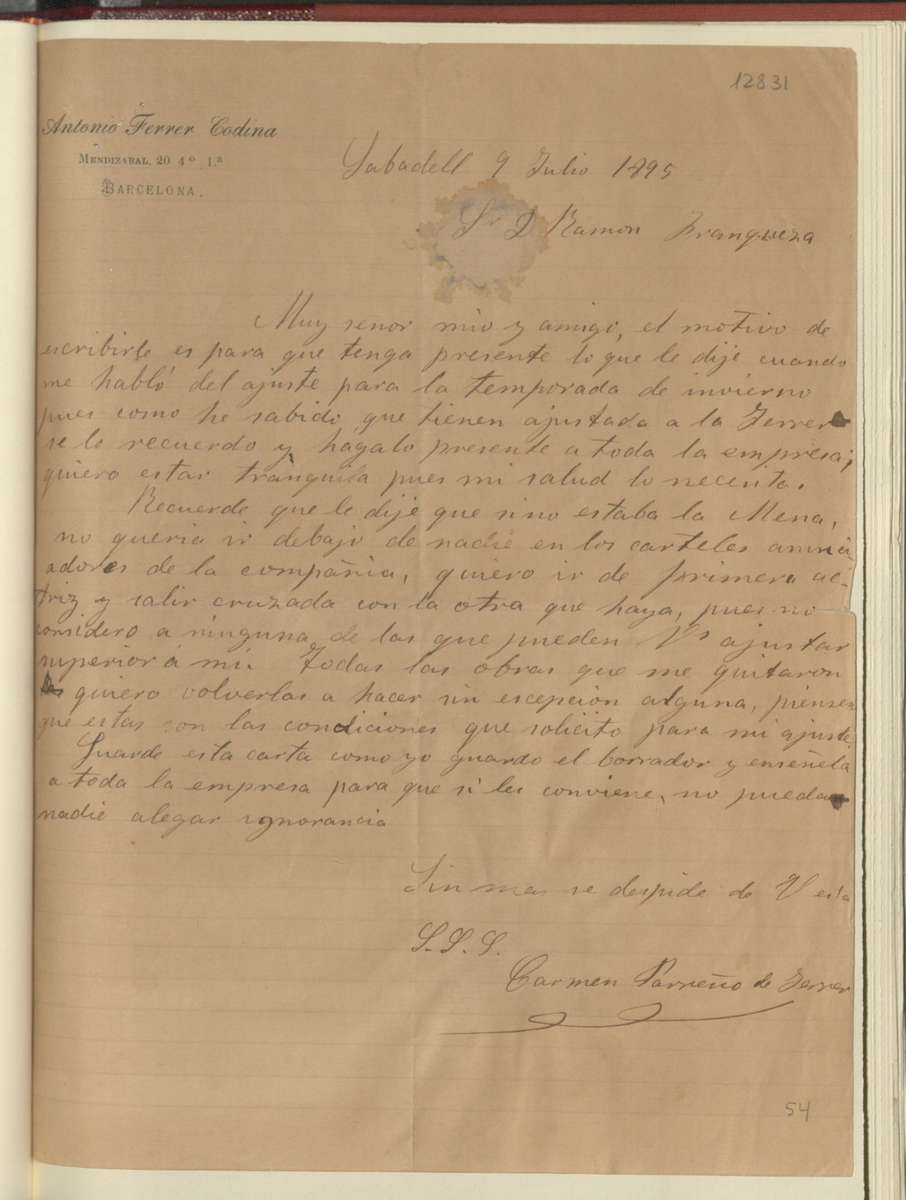 12831
Antonio Ferrer Codina
Mendizabal, 20 4º 1.ª
Barcelona.
Sabadell 9 Julio 1895
Sr D Ramon Franqueza
Muy señor mio y amigo, el motivo de
escribirle es para que tenga presente lo que le dije cuando
me habló del ajuste para la temporada de invierno
pues como he sabido que tienen ajustada a la Ferrer
se lo recuerdo y hagalo presente a toda la empresa;
quiero estar tranquila pues mi salud lo necesita.
Recuerde que le dije que sino estaba la Mena,
no queria ir debajo de nadie en los carteles anunci
adores de la compañia, quiero ir de primera ac-
triz y salir cruzada con la otra que haya, pues no
considero a ninguna de las que pueden Vs ajustar
superior á mi. Todas las obras que me quitaron
quiero volverlas a hacer sin escepcion alguna, piensen
que estas son las condiciones que solicito para mi ajuste.
Guarde esta carta como yo guardo el borrador y enseñela
a toda la empresa para que si les conviene, no pueda
nadie alegar ignorancia
Sin mas se despide de V esta
S.S.S.
Carmen Parreño de Ferrer
54